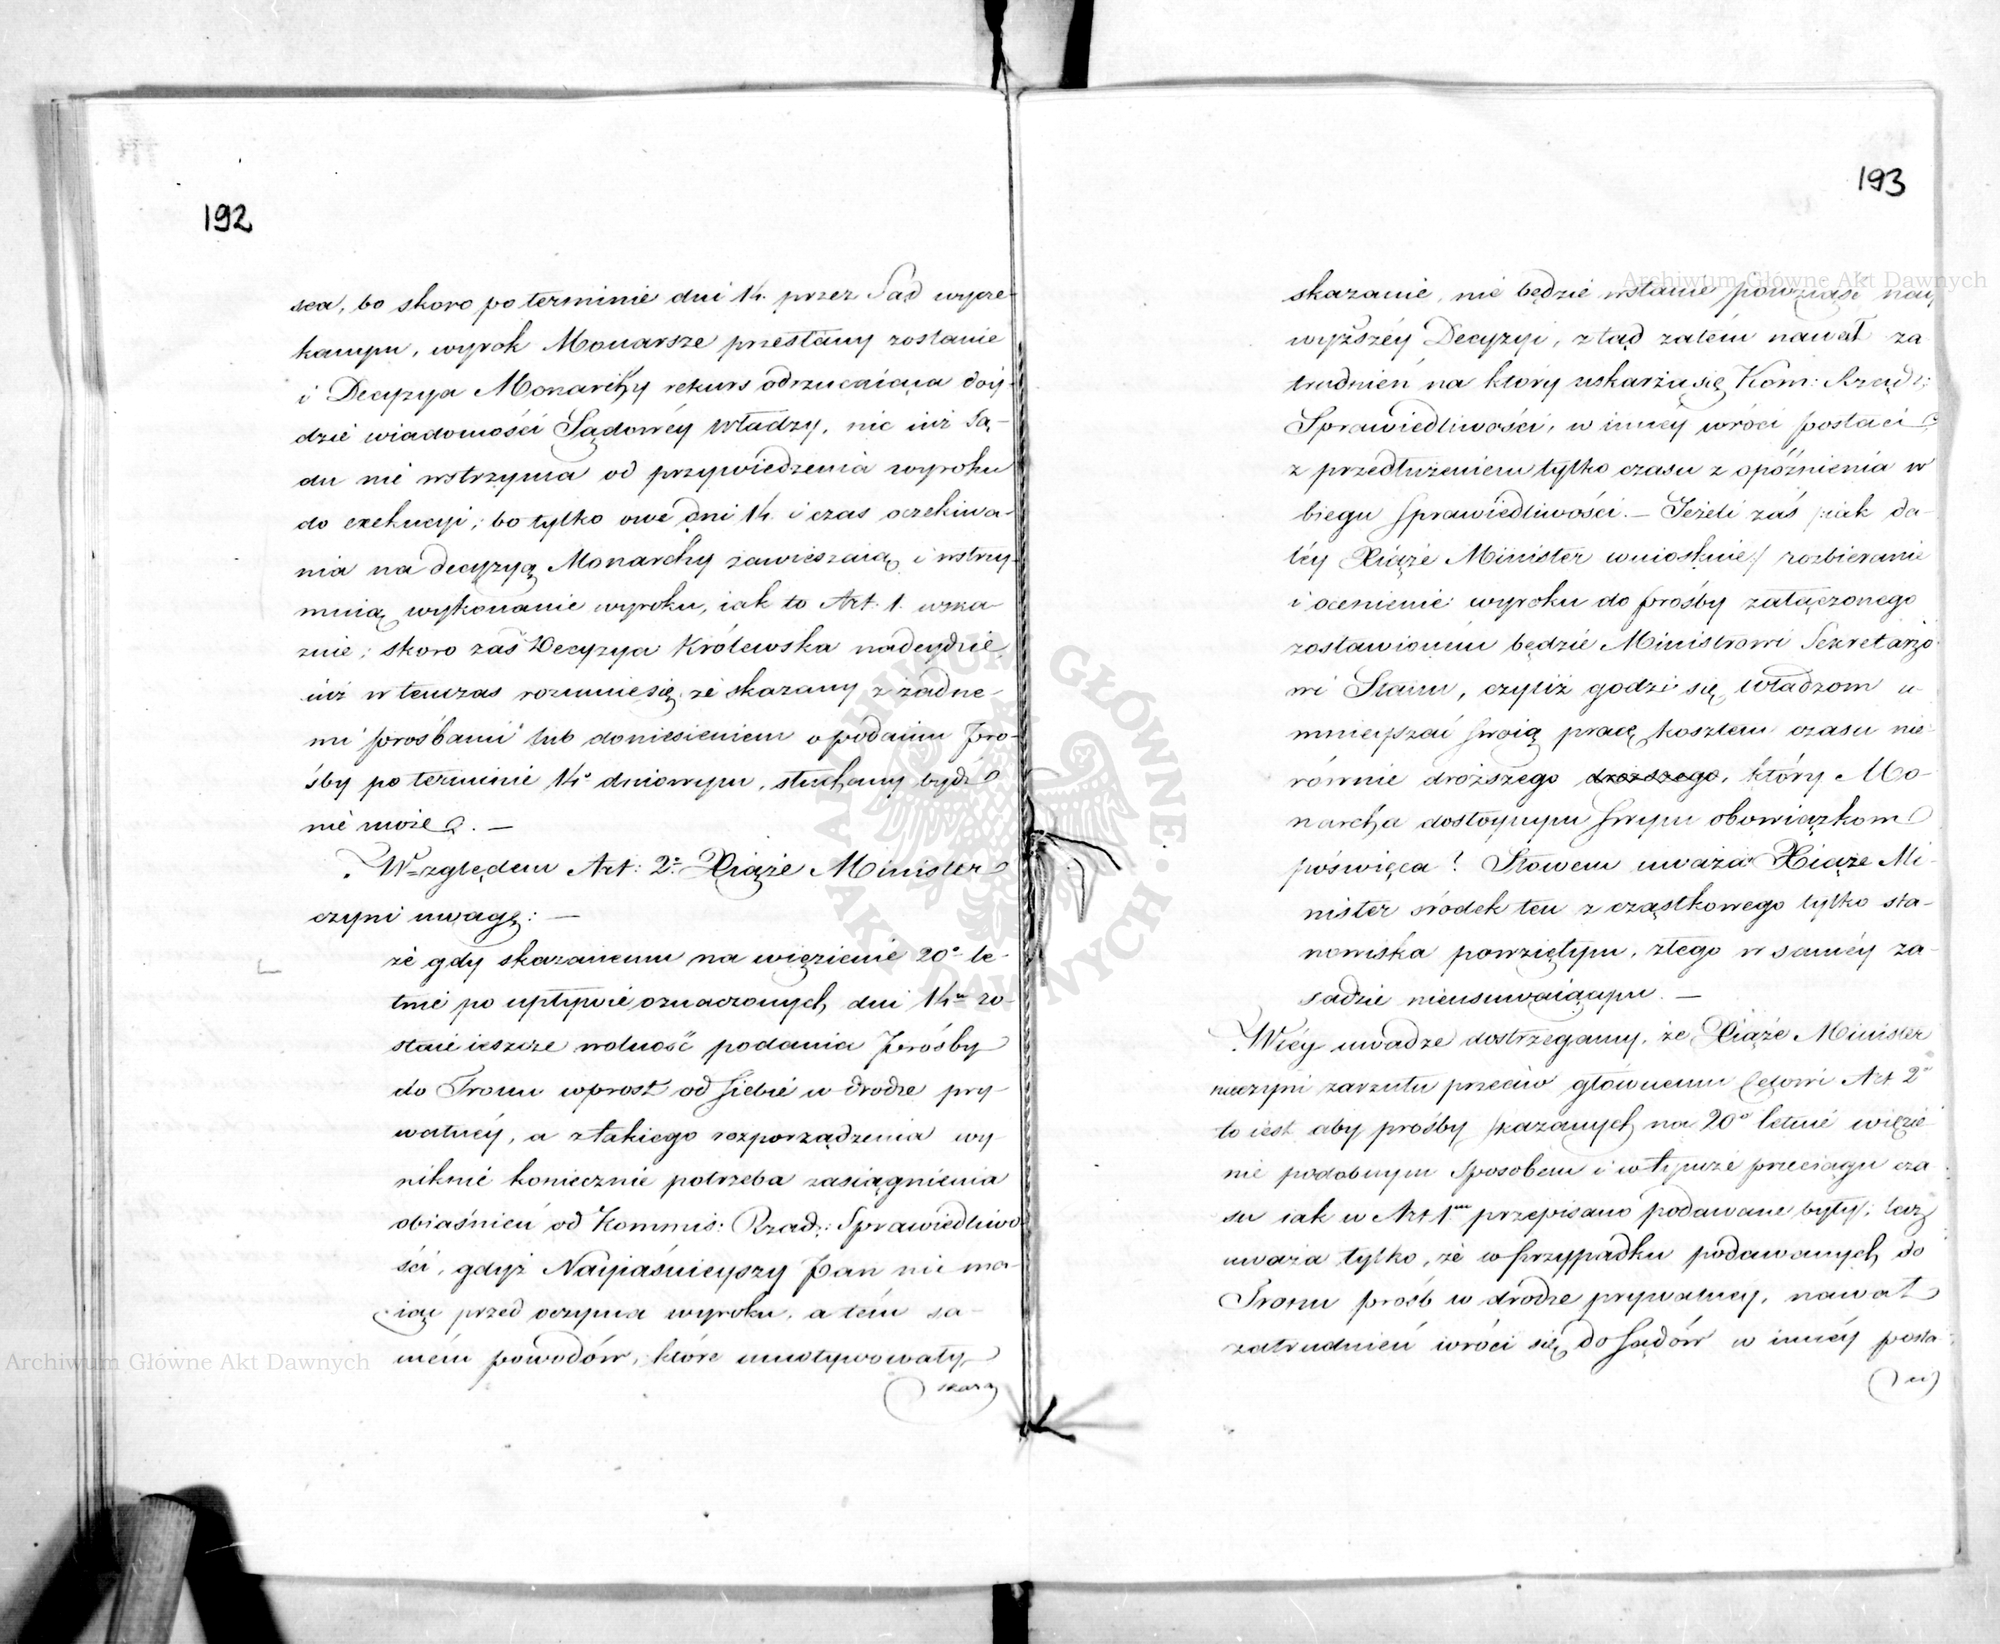 192
sca, bo skoro po terminie dni 14. przez Sąd wyrze-
kanym, wyrok Monarsze przesłany zostanie
i Decyzya Monarchy rekurs odrzucaiąca doy-
dzie wiadomości Sądowéy Władzy, nic iuż Są-
du nie wstrzyma od przywiedzenia wyroku
do exekucyi; bo tylko owe dni 14. i czas oczekiwa-
nia na decyzyą Monarchy zawieszaią i wstrzy-
mnią wykonanie wyroku, iak to Art: 1. wska-
znie; skoro zaś Decyzya Królewska nadeydzie
iuż w tenczas rozumie się, że skazany z żadne-
mi prośbami lub doniesieniem o podaniu pro-
śby po terminie 14o dniowym, słuchany bydź
nie może. —
Względem Art: 2o Xiąże Minister
czyni uwagę: —
że gdy skazanemu na więzienie 20o le-
tnie po upływie oznaczonych dni 14u zo-
staie ieszcze wolność podania prośby
do Tronu wprost od siebie w drodze pry-
watnéy, a z takiego rozporządzenia wy-
niknie koniecznie potrzeba zasiągnienia
obiaśnień od Kommis: Rząd: Sprawiedliwo-
ści, gdyż Nayiaśnieyszy Pan nie ma-
iąc przed oczyma wyroku, a tém sa-
mém powodów, które umotywowały
skaza
193
skazanie, nie będzie wstanie powziąść nay
wyższéy Decyzyi, ztąd zatém nawał za
trudnień na który uskarża się Kom: Rząd:
Sprawiedliwości, w innéy wróci postaci
z przedłużeniem tylko czasu z opóźnienia w
biegu sprawiedliwości. — Jeżeli zaś /:iak da-
léy Xiąże Minister wnioskuie/ rozbieranie
i ocenienie wyroku do prośby załączonego
zostawioném będzie Ministrowi Sekretarzo-
wi Stanu, czyliż godzi się Władzom u-
mnieyszać swoią pracę kosztem czasu nie-
równie droższego droższego, który Mo-
narcha dostoynym swym obowiązkom
poświęca? Słowem uważa Xiąże Mi-
nister środek ten z cząstkowego tylko sta-
nowiska powziętym, złego w saméy za-
sadzie nieusuwaiącym. —
W téy uwadze dostrzegamy, że Xiąże Minister
nieczyni zarzutu przeciw głównemu celowi Art 2o
to iest, aby prośby skazanych na 20o letnie więzie
nie podobnym sposobem i w tymże przeciągu cza
su iak w Art 1m przepisano podawane były; lecz
uważa tylko, że w przypadku podawanych do
Tronu prośb w drodze prywatnéy, nawał
zatrudnień wróci się do Sądów w innéy posta-
ci